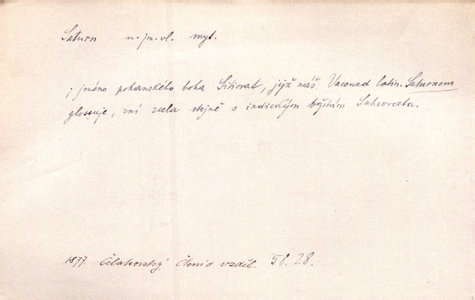 Saturn n. jm. vl. myt.
; jméno pohanského boha Sitivrat, jejž náš Vacerad latin. Saturnem
glosuje, zní zcela stejně s indickým božstvím Satyavrata.
1877. Čelakovský Čtení o vzděl. 58. 28.